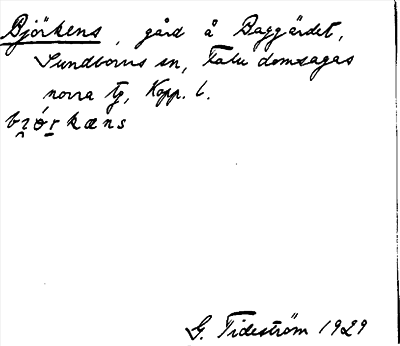 Björkens, gård å Baggärdet,
Sundborns sn, Falu domsagas
norra tg, Kopp. l.
bjǿrkæns
G. Tideström 1929